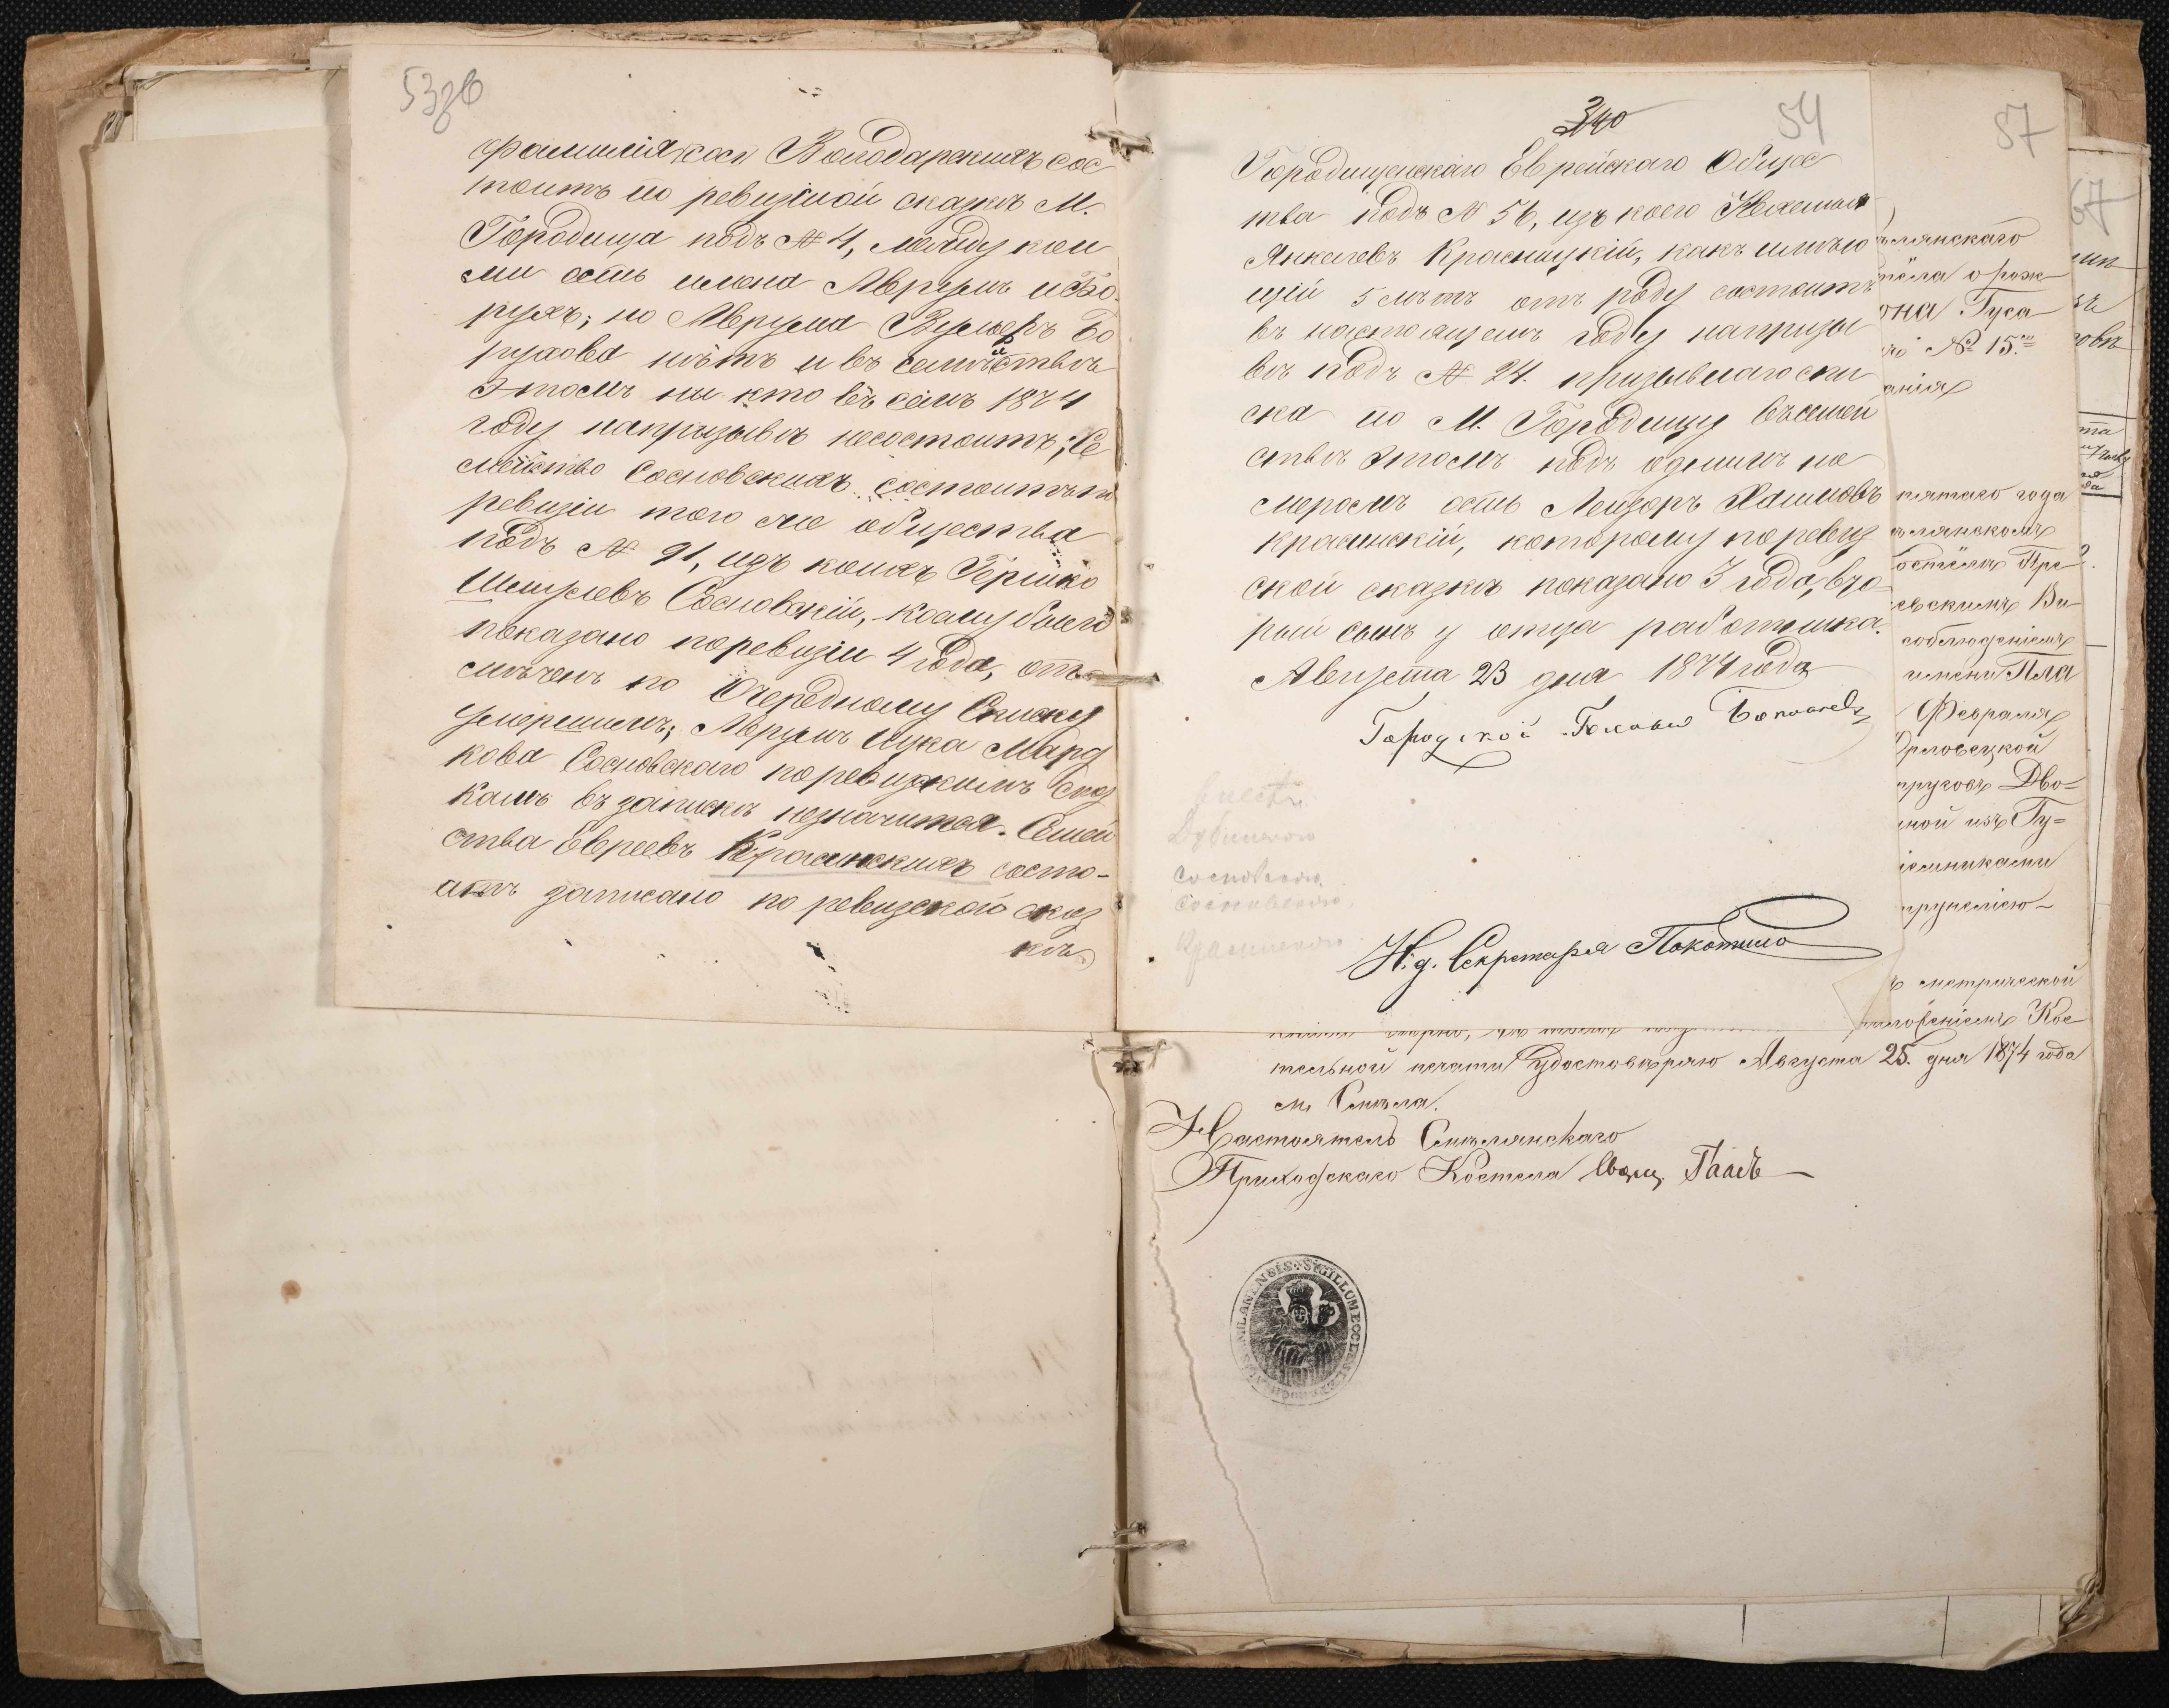 53об
фамилія коси Володарскихъ сос
тоитъ по ревизкой сказкѣ М.
Городища подъ № 4, между кои
ми есть имена Аврумъ и Бо
рухъ; но Аврума Бо
рухова нѣтъ и въ семействѣ
этомъ ни кто въ семъ 1874
году напризывѣ несостоитъ; Се
мейство Сосновскихъ состоитъ по
ревизіи того же общества
подъ № 91, изъ коихъ Гершко
Шмулевъ Сосновскій, коему было
показано поревизіи 4 года, отъ
мѣченъ по Очередному Списку
умершимъ; Аврумъ Цука Мард
кова Сосновскаго поревизскимъ Сказ
камъ въ запискѣ незначится. Семей
ства Евреевъ Красинскихъ состо-
итъ записано по ревизской сказ
кѣ
340
54
Городищенскаго Еврейскаго Общес
тва подъ № 56, изъ коего
Янкелевъ Красницкій, какъ имѣю
щій 5 лѣтъ отъ роду состоитъ
въ настоящемъ году напризы
вѣ подъ № 24. призывнаго спи
ска по М. Городищу въ семей
ствѣ этомъ подъ однимъ но
меромъ есть Лейзоръ Хаимовъ
Красинскій, которому поревиз
ской сказкѣ показано 3 года, вто
рый сынъ у отца работника.
Августа 23 дня 1874 года
Городской Голова
Дубинскаго
Сосновскаго
Сосновскаго
Красинскаго
И. д. Секретаря Покотило
57
елянскаго
тёла о рож
она Гуса
№ 15.
анія
пятаго года
елянскомъ
остёла Пре
евскимъ Ви
соблюденіемъ
имени Пла
Февраля
Орловецкой
пруговъ Дво-
ной изъ Гу-
іемниками
метрической
ложеніемъ Кос
тельной печати удостовѣряю Августа 25. дня 1874 года
м. Смѣла.
Настоятель Смѣлянскаго
Приходскаго Костела Свящ. Гаасъ
67
SIGILLUM ECCLESIAE